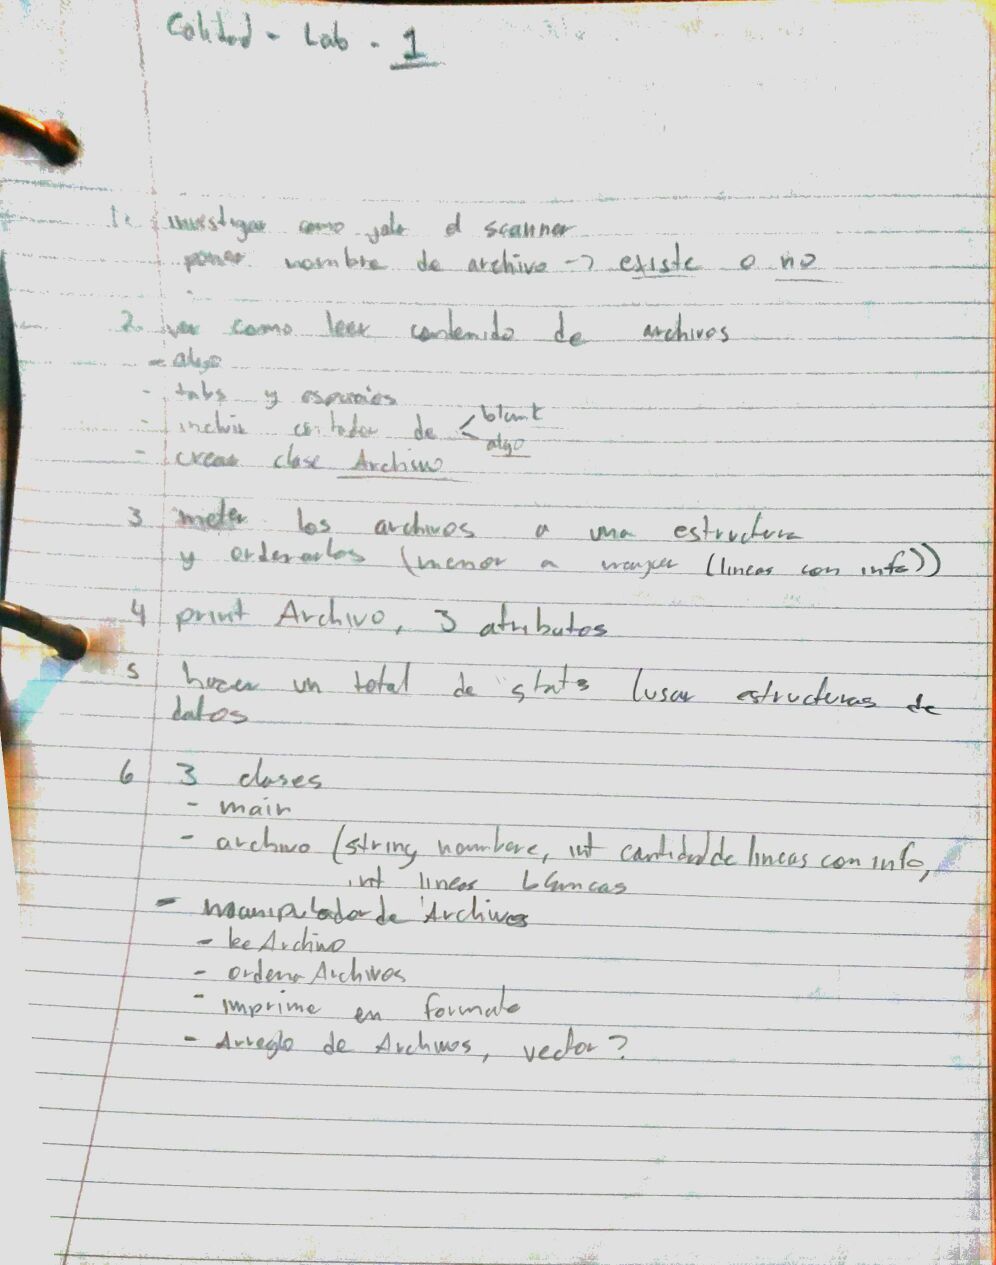 Calidad - Lab - 1
1. investigar como jala el scanner
poner nombre de archivo -> existe o no
2. ver como leer contenido de archivos
- algo
- tabs y espacios
- incluir contador de < blank
algo
- crear clase Archivo
3 meter los archivos a una estructura
y ordenarlos (menor a mayor (lineas con info))
4 print Archivo, 3 atributos
5 hacer un total de stats (usar estructuras de
datos
6 3 clases
- main
- archivo (string nombre, int cantidad de lineas con info,
int lineas blancas
- manipulador de Archivos
- lee Archivo
- ordena Archivos
- imprime en formato
- Arreglo de Archivos, vector?